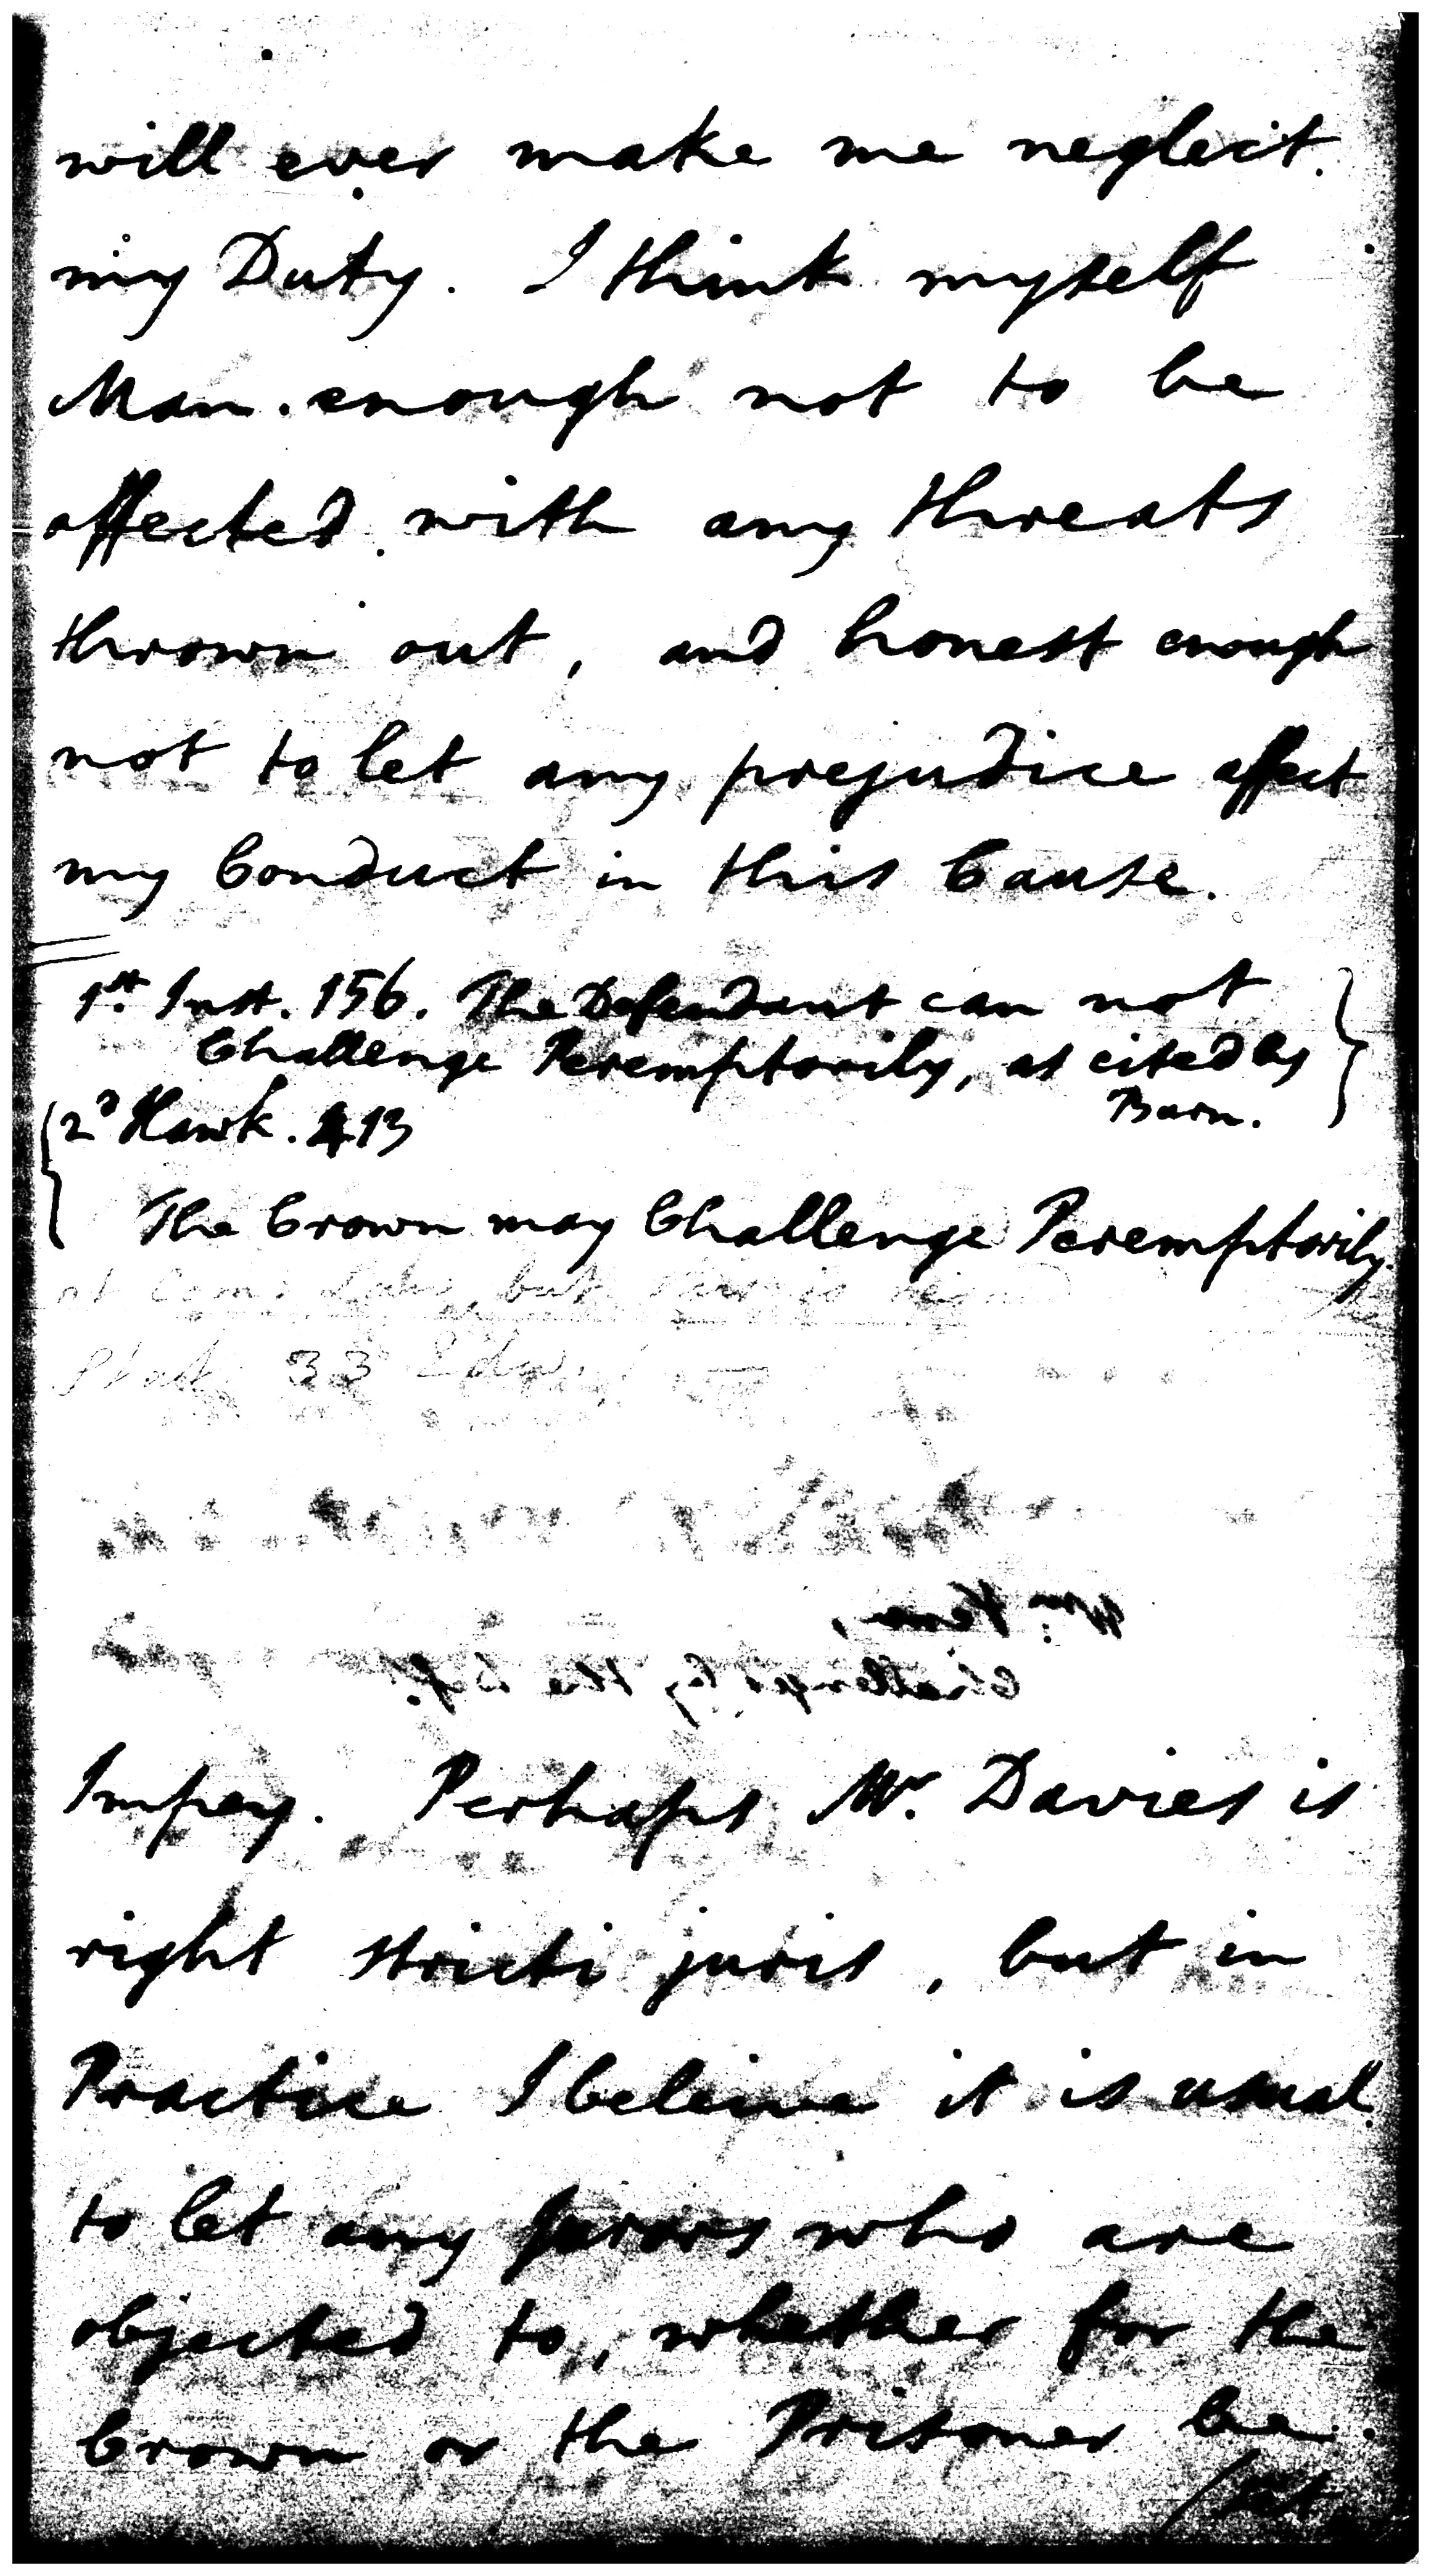 will ever make me neglect
my Duty. I think myself
Man enough not to be
affected with any threats
thrown out, and honest enough
not to let any prejudice affect
my Conduct in this Cause.
1st. Inst. 156. The Defendant can not
Challenge Peremptorily, as cited by
Burn.
2d Hawk. 413
The Crown may Challenge Peremptorily
at Com: Law, but this is
Stat. 33 Edw.
Wm. 
Challenged by the Deft.
Impey. Perhaps Mr. Davies is
right stricti juris, but in
Practice I beleive it is usual
to let any Jurors who are
objected to, whether for the
Crown or the Prisoner be
(set